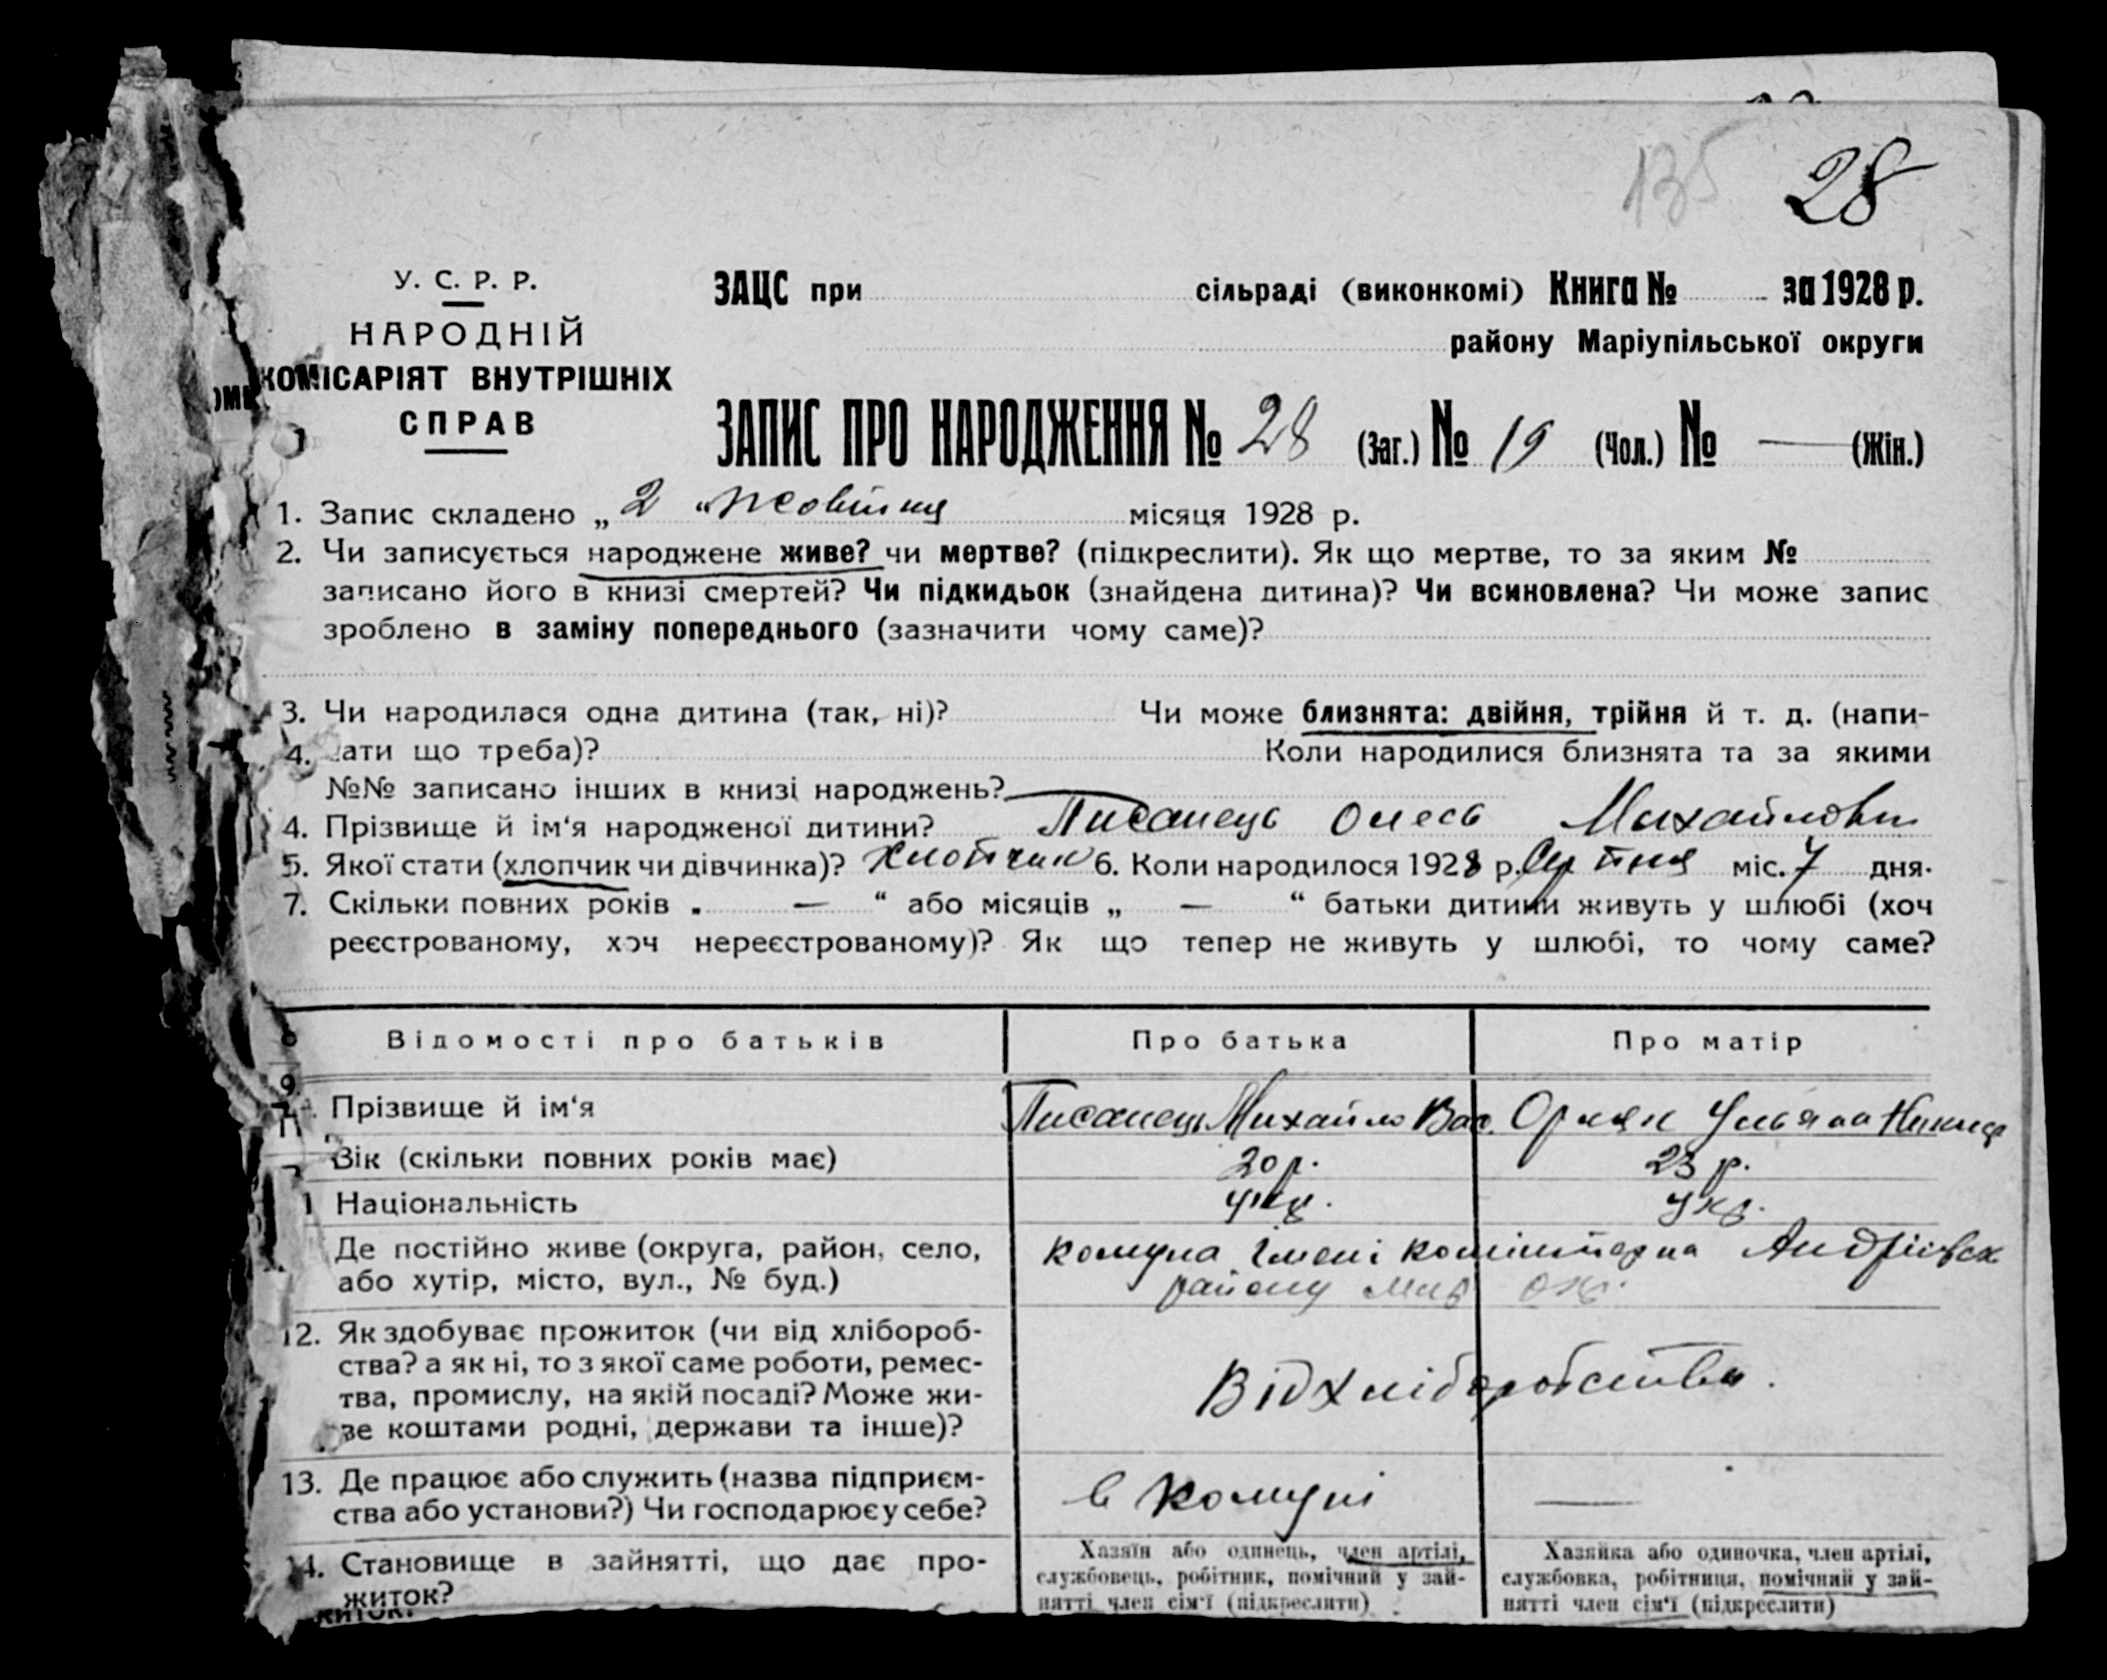 135 28
У. С. Р. Р.
НАРОДНІЙ
КОМІСАРІЯТ ВНУТРІШНІХ
СПРАВ
ЗАЦС при сільраді (виконкомі) Книга № за 1928 р.
району Маріупільської округи
ЗАПИС ПРО НАРОДЖЕННЯ № 28 (Заг.) № 19 (Чол.) № — (Жін.)
1. Запис складено „ 2 “ Жовтня місяця 1928 р.
2. Чи записується народжене живе? чи мертве? (підкреслити). Як що мертве, то за яким №
записано його в книзі смертей? Чи підкидьок (знайдена дитина)? Чи всиновлена? Чи може запис
зроблено в заміну попереднього (зазначити чому саме)?
3. Чи народилася одна дитина (так, ні)? Чи може близнята: двійня, трійня й т. д. (напи-
4. сати що треба)? Коли народилися близнята та за якими
№№ записано інших в книзі народжень? —
4. Прізвище й ім‘я народженої дитини? Писанець Олесь Михайлови
5. Якої стати (хлопчик чи дівчинка)? Хлопчик 6. Коли народилося 1928 р. Серпня міс. 7 дня.
7. Скільки повних років . — “ або місяців „ — “ батьки дитини живуть у шлюбі (хоч
реєстрованому, хоч нереєстрованому)? Як що тепер не живуть у шлюбі, то чому саме?
8 Відомості про батьків Про батька Про матір
9
11 Прізвище й ім‘я Писанець Михайло Вас. Ульяна
Вік (скільки повних років має) 20 р. 23 р.
1 Національність Укр. Укр.
Де постійно живе (округа, район, село, комуна імені комінтерна Андріївск
або хутір, місто, вул., № буд.) району ок.
12. Як здобуває прожиток (чи від хлібороб-
ства? а як ні, то з якої саме роботи, ремес- Від хліборобства.
тва, промислу, на якій посаді? Може жи-
ве коштами родні, держави та інше)?
13. Де працює або служить (назва підприєм- в комуні —
ства або установи?) Чи господарює у себе?
14. Становище в зайнятті, що дає про- Хазяїн або одинець, член артілі, Хазяйка або одиночка, член артілі,
житок? службовець, робітник, помічний у зай- службовка, робітниця, помічний у зай-
нятті член сім‘ї (підкреслити) нятті член сім‘ї (підкреслити)